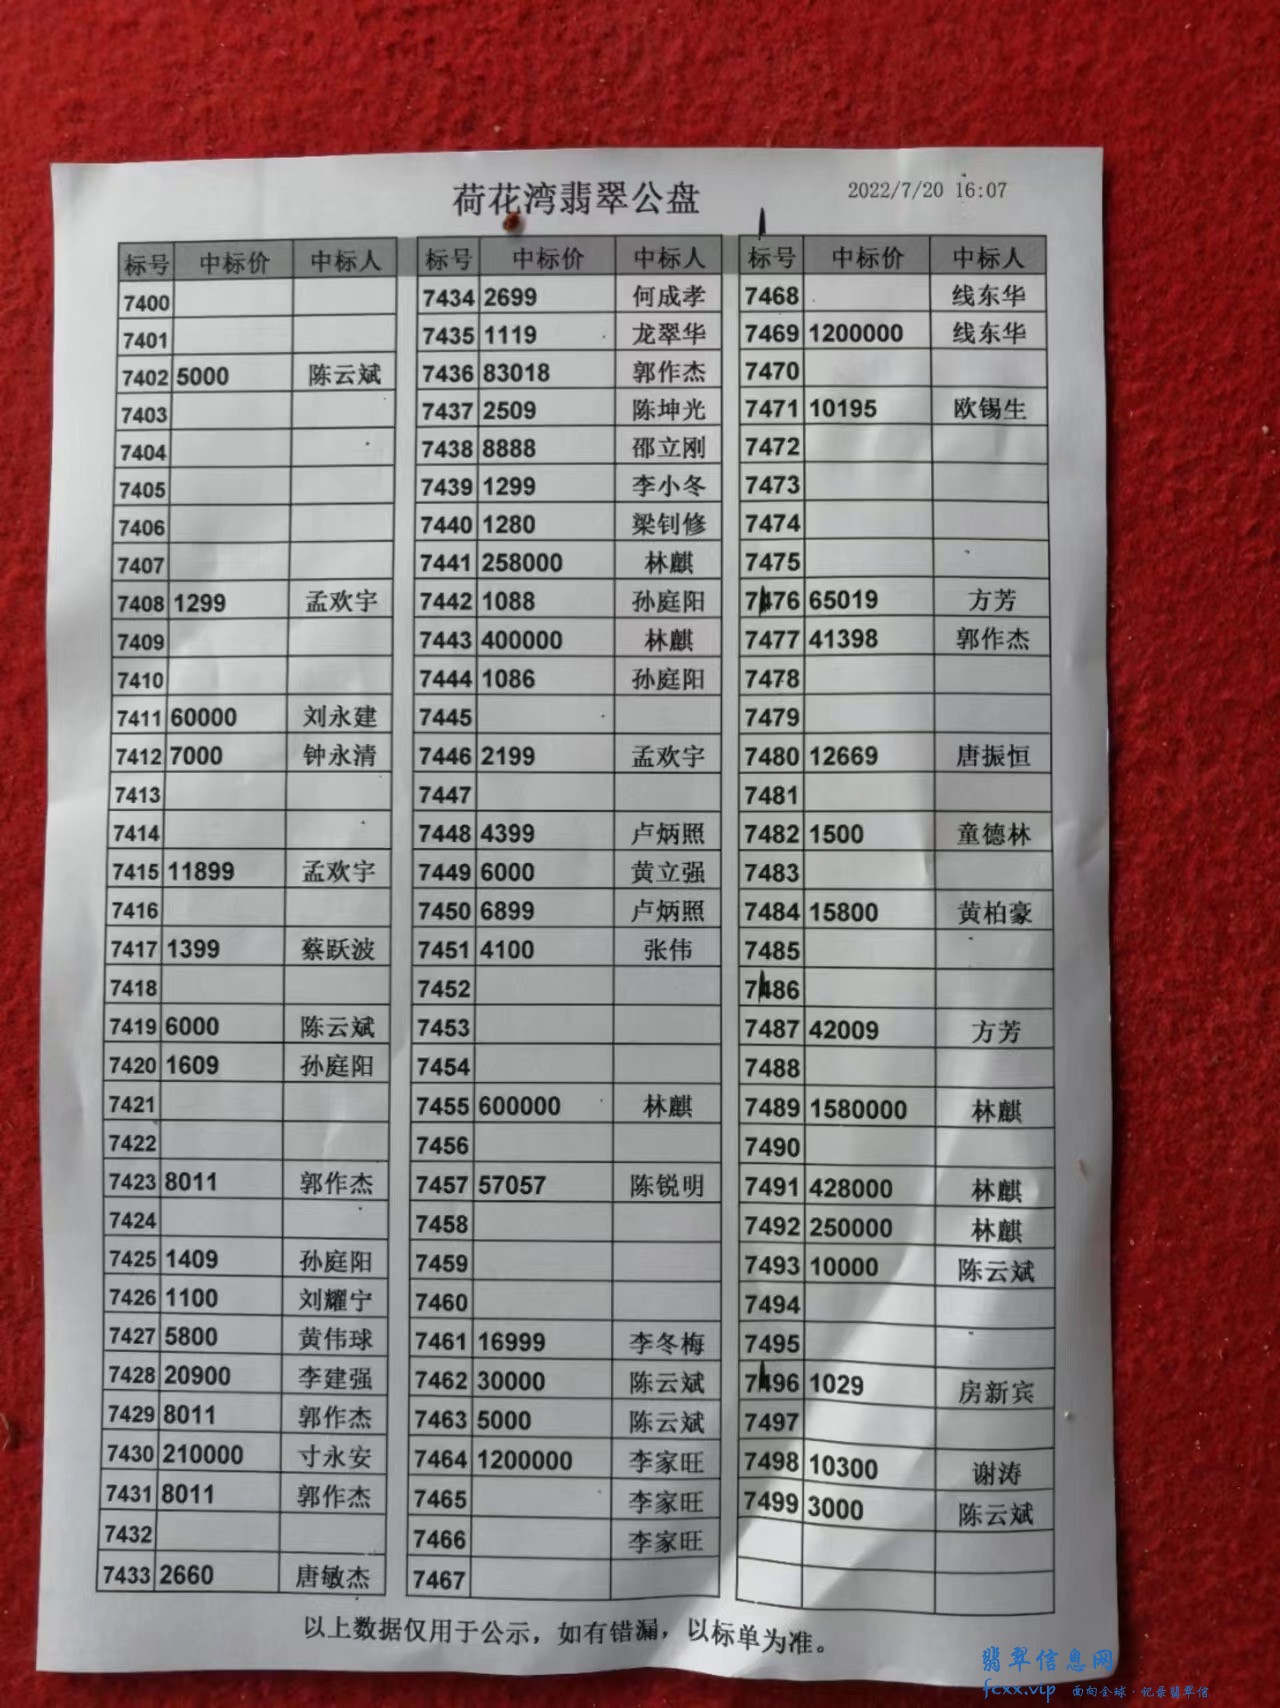 荷花湾翡翠公盘
2022/7/20 16:07
标号 中标价 中标人
7400
7401
7402 5000 陈云斌
7403
7404
7405
7406
7407
7408 1299 孟欢宇
7409
7410
7411 60000 刘永建
7412 7000 钟永清
7413
7414
7415 11899 孟欢宇
7416
7417 1399 蔡跃波
7418
7419 6000 陈云斌
7420 1609 孙庭阳
7421
7422
7423 8011 郭作杰
7424
7425 1409 孙庭阳
7426 1100 刘耀宁
7427 5800 黄伟球
7428 20900 李建强
7429 8011 郭作杰
7430 210000 寸永安
7431 8011 郭作杰
7432
7433 2660 唐敏杰
标号 中标价 中标人
7434 2699 何成孝
7435 1119 龙翠华
7436 83018 郭作杰
7437 2509 陈坤光
7438 8888 邵立刚
7439 1299 李小冬
7440 1280 梁钊修
7441 258000 林麒
7442 1088 孙庭阳
7443 400000 林麒
7444 1086 孙庭阳
7445
7446 2199 孟欢宇
7447
7448 4399 卢炳照
7449 6000 黄立强
7450 6899 卢炳照
7451 4100 张伟
7452
7453
7454
7455 600000 林麒
7456
7457 57057 陈锐明
7458
7459
7460
7461 16999 李冬梅
7462 30000 陈云斌
7463 5000 陈云斌
7464 1200000 李家旺
7465 李家旺
7466 李家旺
7467
标号 中标价 中标人
7468 线东华
7469 1200000 线东华
7470
7471 10195 欧锡生
7472
7473
7474
7475
7476 65019 方芳
7477 41398 郭作杰
7478
7479
7480 12669 唐振恒
7481
7482 1500 童德林
7483
7484 15800 黄柏豪
7485
7486
7487 42009 方芳
7488
7489 1580000 林麒
7490
7491 428000 林麒
7492 250000 林麒
7493 10000 陈云斌
7494
7495
7496 1029 房新宾
7497
7498 10300 谢涛
7499 3000 陈云斌
以上数据仅用于公示，如有错漏，以标单为准。
翡翠信息网
fcxx.vip 面向全球·记录翡翠信